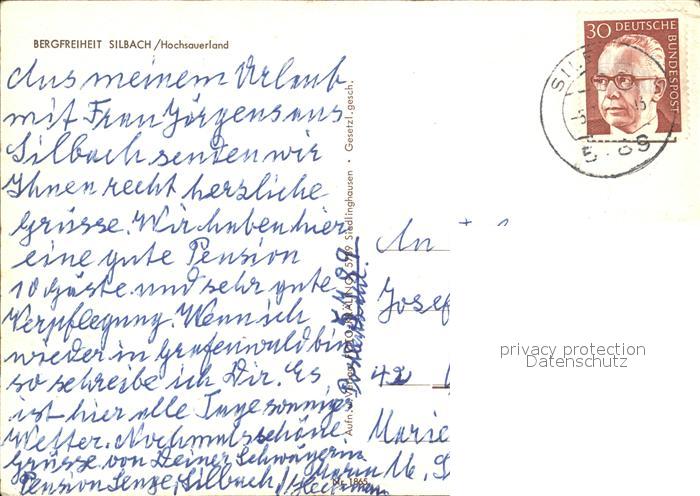 BERGFREIHEIT SILBACH / Hochsauerland
30 DEUTSCHE BUNDESPOST
Aus meinem Urlaub
mit Frau Jörgens aus
Silbach senden wir
Ihnen recht herzliche
Grüsse. Wir haben hier
eine gute Pension
10 Gäste und sehr gute
Verpflegung. Wenn ich
wieder in Grafenwald bin
so schreibe ich Dir. Es
ist hier alle Tage sonnig
Wetter. Nochmals schöne
Grüsse von Deiner Schwägerin
Pension Senge, Silbach
Siedlinghausen · Gesetzl. gesch.
Nr. 1865
An
Josef
42
Marie
privacy protection
Datenschutz